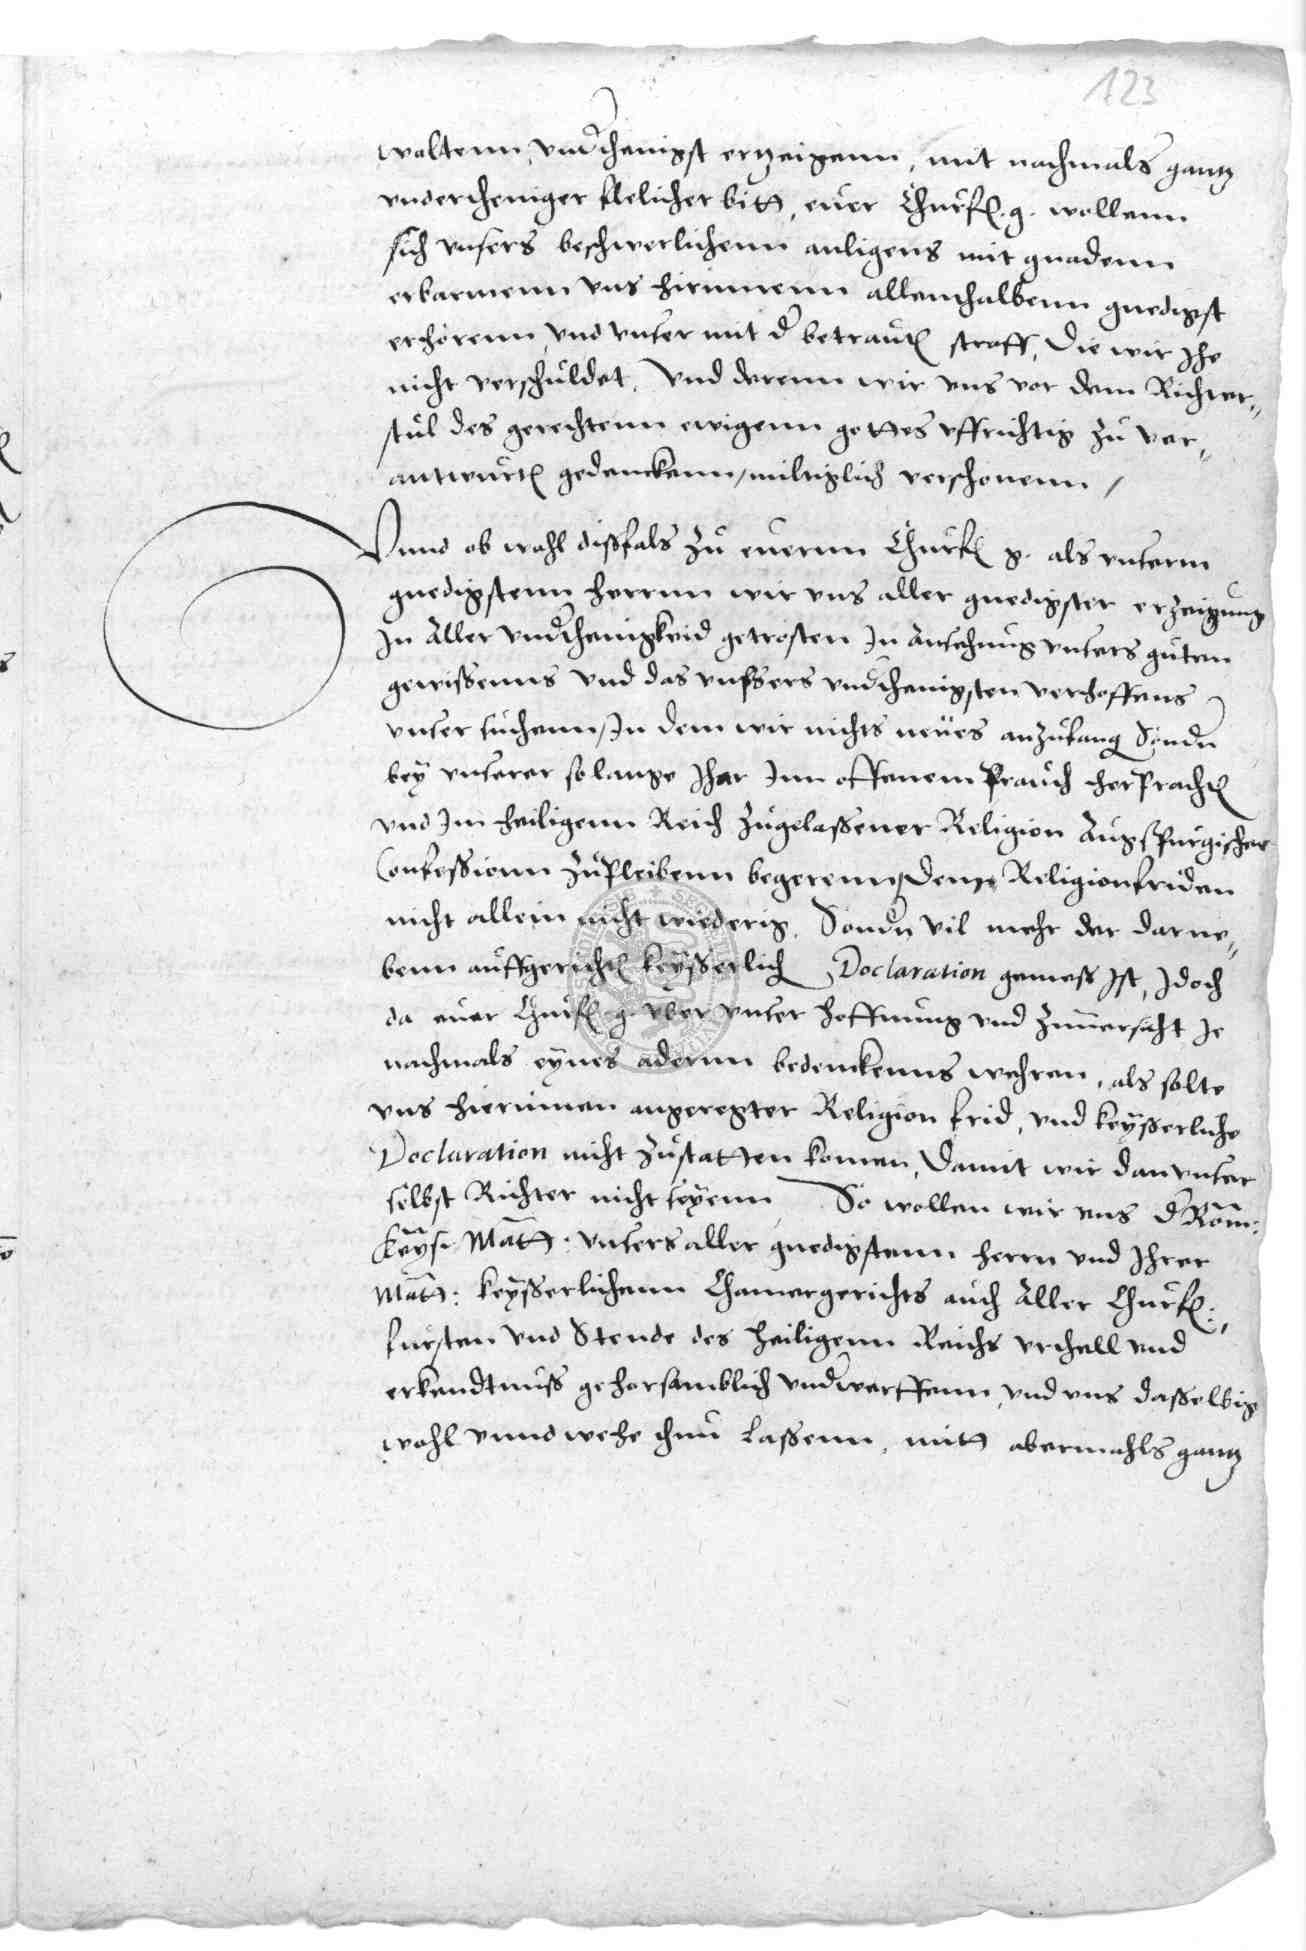 123
waltenn, undthenigst ertzeigenn, mit nachmals gantz
undertheniger klelicher bitt, euer Churf. g. wollenn
sich unsers beschwerlichenn anligens mit gnadenn
erbarmenn uns hirinnenn allenthalbenn gnedigst
erhörenn, und unser mit d betraut straff, die wir Jhe
nicht verschuldet, Und derenn wir uns vor dem Richter„
stul des gerechtenn ewigenn gottes uffrichtig zu ver„
antwurt gedenckenn, miltiglich verschonenn /
Unnd ob wohl dissfals zu euernn Churf g. als unserm
gnedigstenn herrnn wir uns aller gnedigster erzeigung
In aller undthenigkeid getrosten In ansehung unsers guten
gewissenns und das unssers undthenigsten verhoffens
unser suchenn, In dem wir nichts neües anzufang Sondn
bey unserer solange Jhar Inn offenem Prauch herPracht
und Im heiligenn Reich zugelassener Religion AugsPurgischer
Confessionn zuPleibenn begerenn, dem Religionfriden
nicht allein nicht wiederig, Sondn vil mehr der darne„
benn auffgericht keysserlich Declaration gemess Ist, Jdoch
da euer Churf g. uber unser hoffnung und zuuersicht Je
nachmals eynes adernn bedenckenns wehren, als solte
uns hierinnen angeregter Religion frid, und keysserliche
Declaration nicht zustatten komen, Damit wir dan unser
selbst Richter nicht seyenn So wollen wir uns d Röm:
Keys. Matt: unsers aller gnedigstenn herrn und Ihrer
Matt: keysserlichenn Chamergerichts auch aller Churf:,
fursten und Stende des heiligenn Reichs urthell und
erkendtnuss gehorsamblich undwerffenn, und uns dasselbig
wohl unnd wehe thun lassenn, mitt abermahls gantz